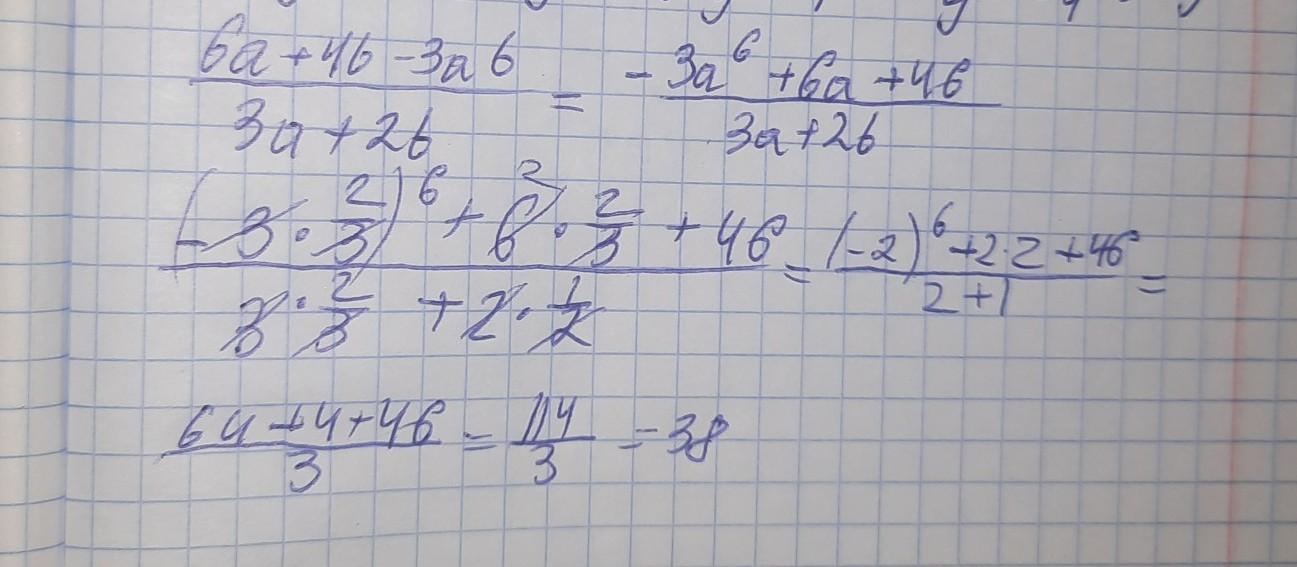 (6a+4b-3ab)/(3a+2b) = (-3a^6+6a+46)/(3a+2b)
((-3·2/3)^6+6^2·2/3+46)/(3·2/3+2·1/2) = ((-2)^6+2·2+46)/(2+1) =
(64+4+46)/3 = 114/3 = 38